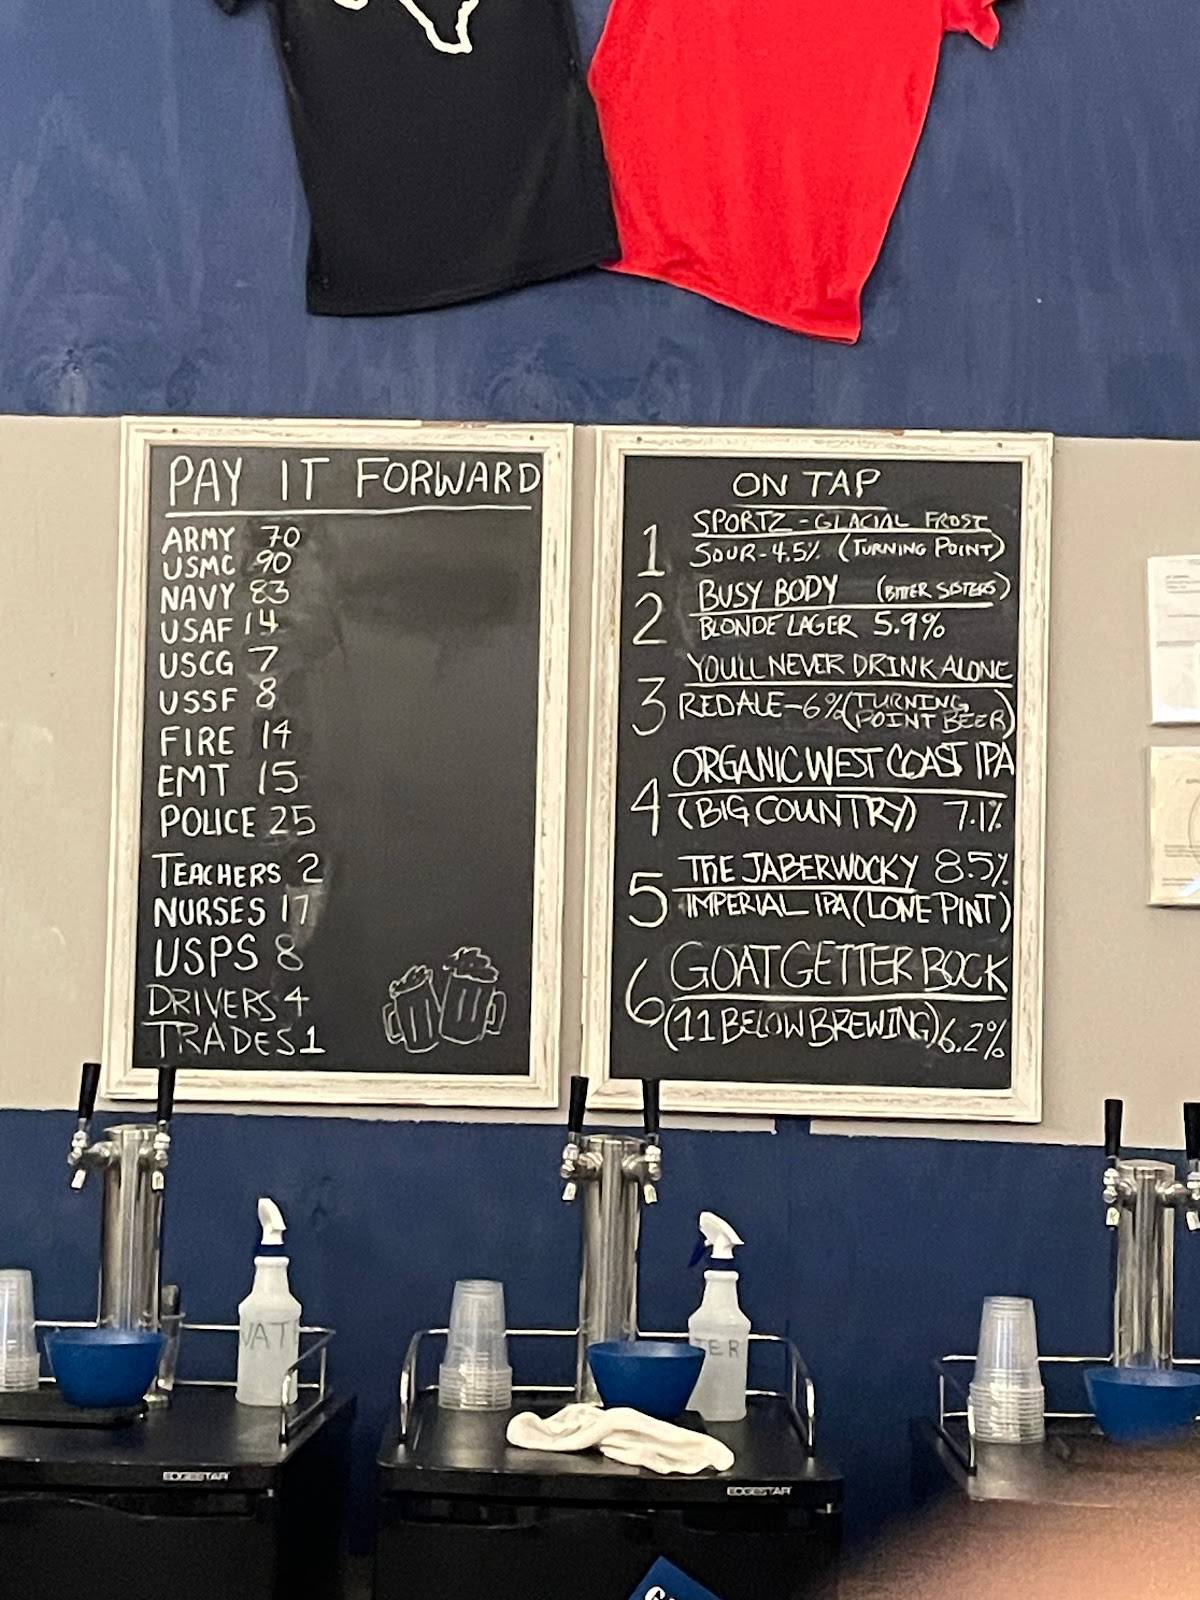 PAY IT FORWARD
ARMY 70
USMC 90
NAVY 83
USAF 14
USCG 7
USSF 8
FIRE 14
EMT 15
POLICE 25
TEACHERS 2
NURSES 17
USPS 8
DRIVERS 4
TRADES 1
ON TAP
1 SPORTZ - GLACIAL FROST
SOUR - 4.5% (TURNING POINT)
2 BUSY BODY (BITTER SISTERS)
BLONDE LAGER 5.9%
3 YOULL NEVER DRINK ALONE
RED ALE - 6% (TURNING
POINT BEER)
4 ORGANIC WEST COAST IPA
(BIG COUNTRY) 7.1%
5 THE JABERWOCKY 8.5%
IMPERIAL IPA (LONE PINT)
6 GOAT GETTER BOCK
(11 BELOW BREWING) 6.2%
WAT
TER
EDGESTAR
EDGESTAR